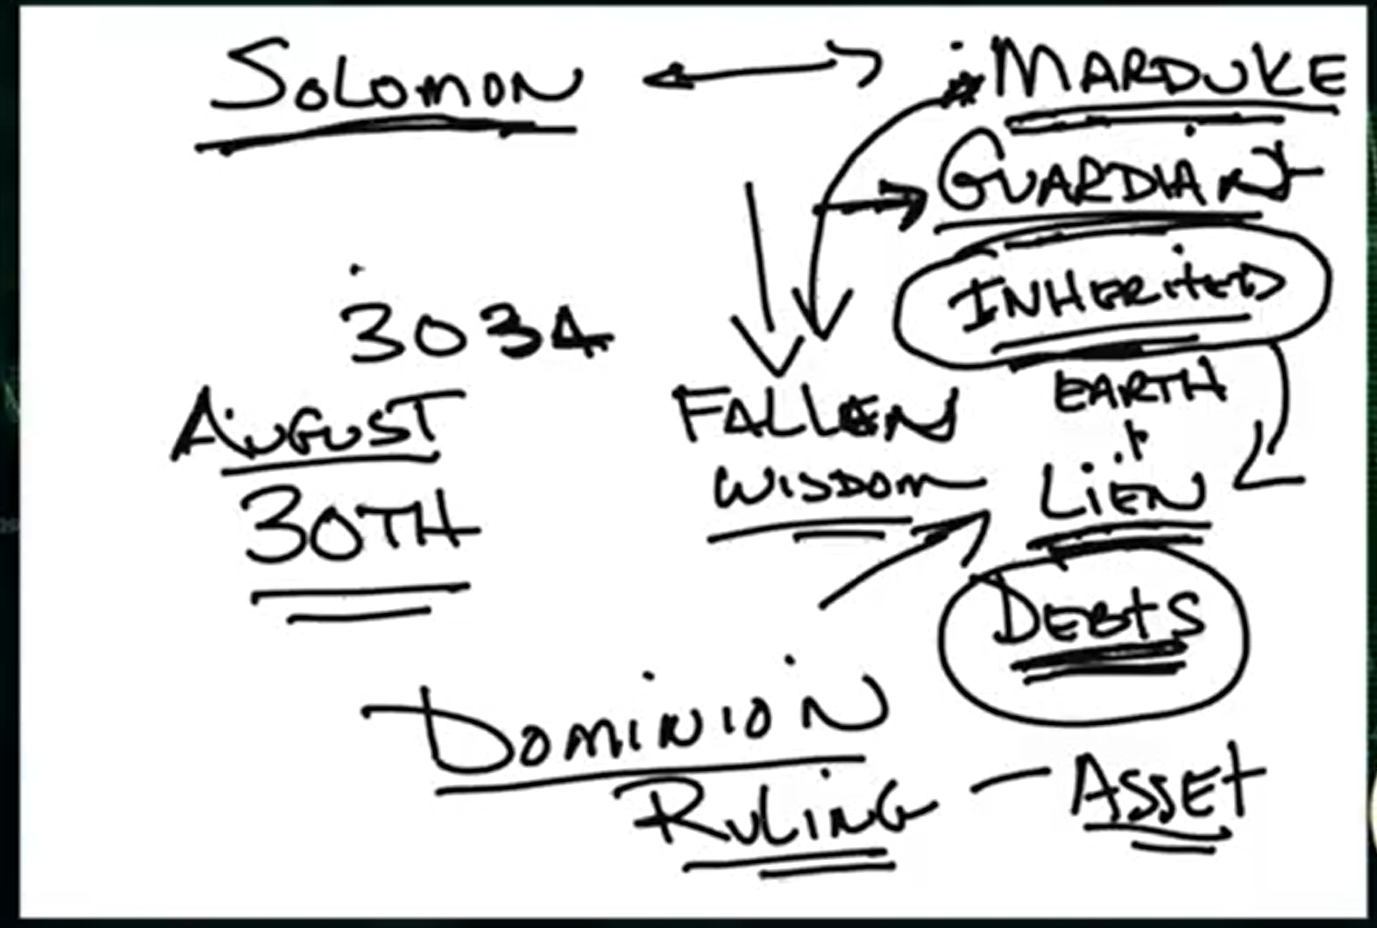 SOLOMON
MARDUKE
GUARDIAN
INHERITED
EARTH
+
LIEN
DEBTS
3034
AUGUST
30TH
FALLEN
WISDOM
DOMINION
RULING — ASSET